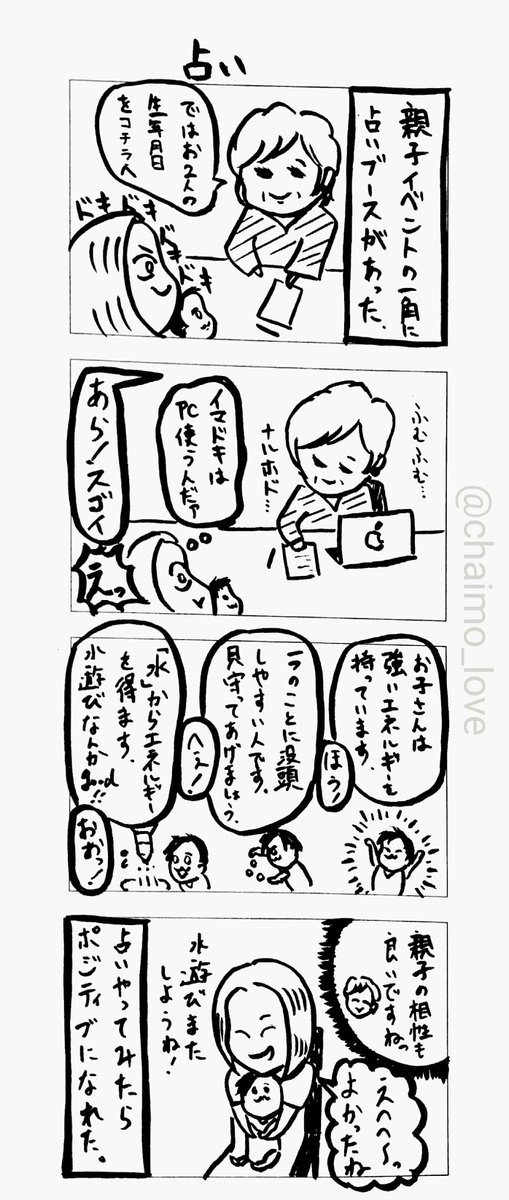 占い
親子イベントの一角に
占いブースがあった.
ではお2人の
生年月日
をコチラへ
ドキドキ
ドキドキ
ふむふむ…
ナルホド…
イマドキは
PC使うんだァ
あら!スゴイ
えっ
お子さんは
強いエネルギーを
持っています.
ほう!
一つのことに没頭
しやすい人です.
見守ってあげましょう.
へぇ!
「水」からエネルギー
を得ます.
水遊びなんか
good!!
おおっ!
親子の相性も
良いですねっ
えへへ〜っ
よかったね
水遊びまた
しようね!
占いやってみたら
ポジティブになれた。
@chaimo_love